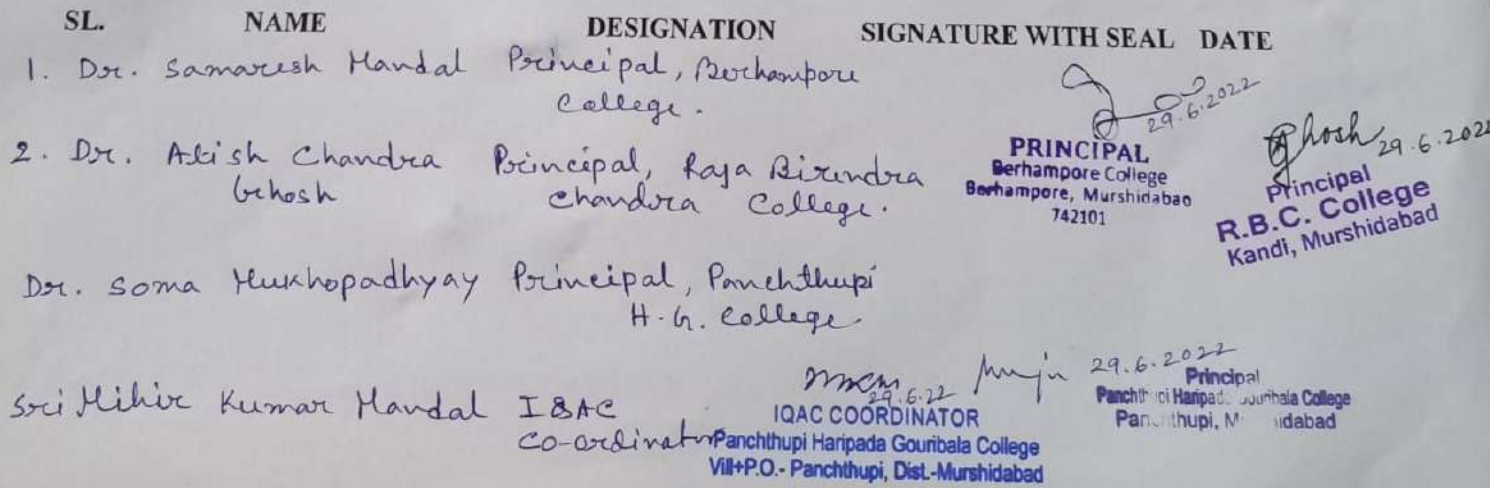 SL. NAME DESIGNATION SIGNATURE WITH SEAL DATE
1. Dr. Samaresh Mandal Principal, Berhampore
College.
29.6.2022
PRINCIPAL
Berhampore College
Berhampore, Murshidabad
742101
2. Dr. Atish Chandra Principal, Raja Birendra
Ghosh Chandra College.
Ghosh 29.6.2022
Principal
R.B.C. College
Kandi, Murshidabad
Dr. Soma Mukhopadhyay Principal, Panchthupi
H.G. College
29.6.2022
Principal
Panchthupi Haripada Gouribala College
Panchthupi, Murshidabad
Sri Mihir Kumar Mandal IQAC
Co-ordinator
29.6.22
IQAC COORDINATOR
Panchthupi Haripada Gouribala College
Vill+P.O.- Panchthupi, Dist.-Murshidabad